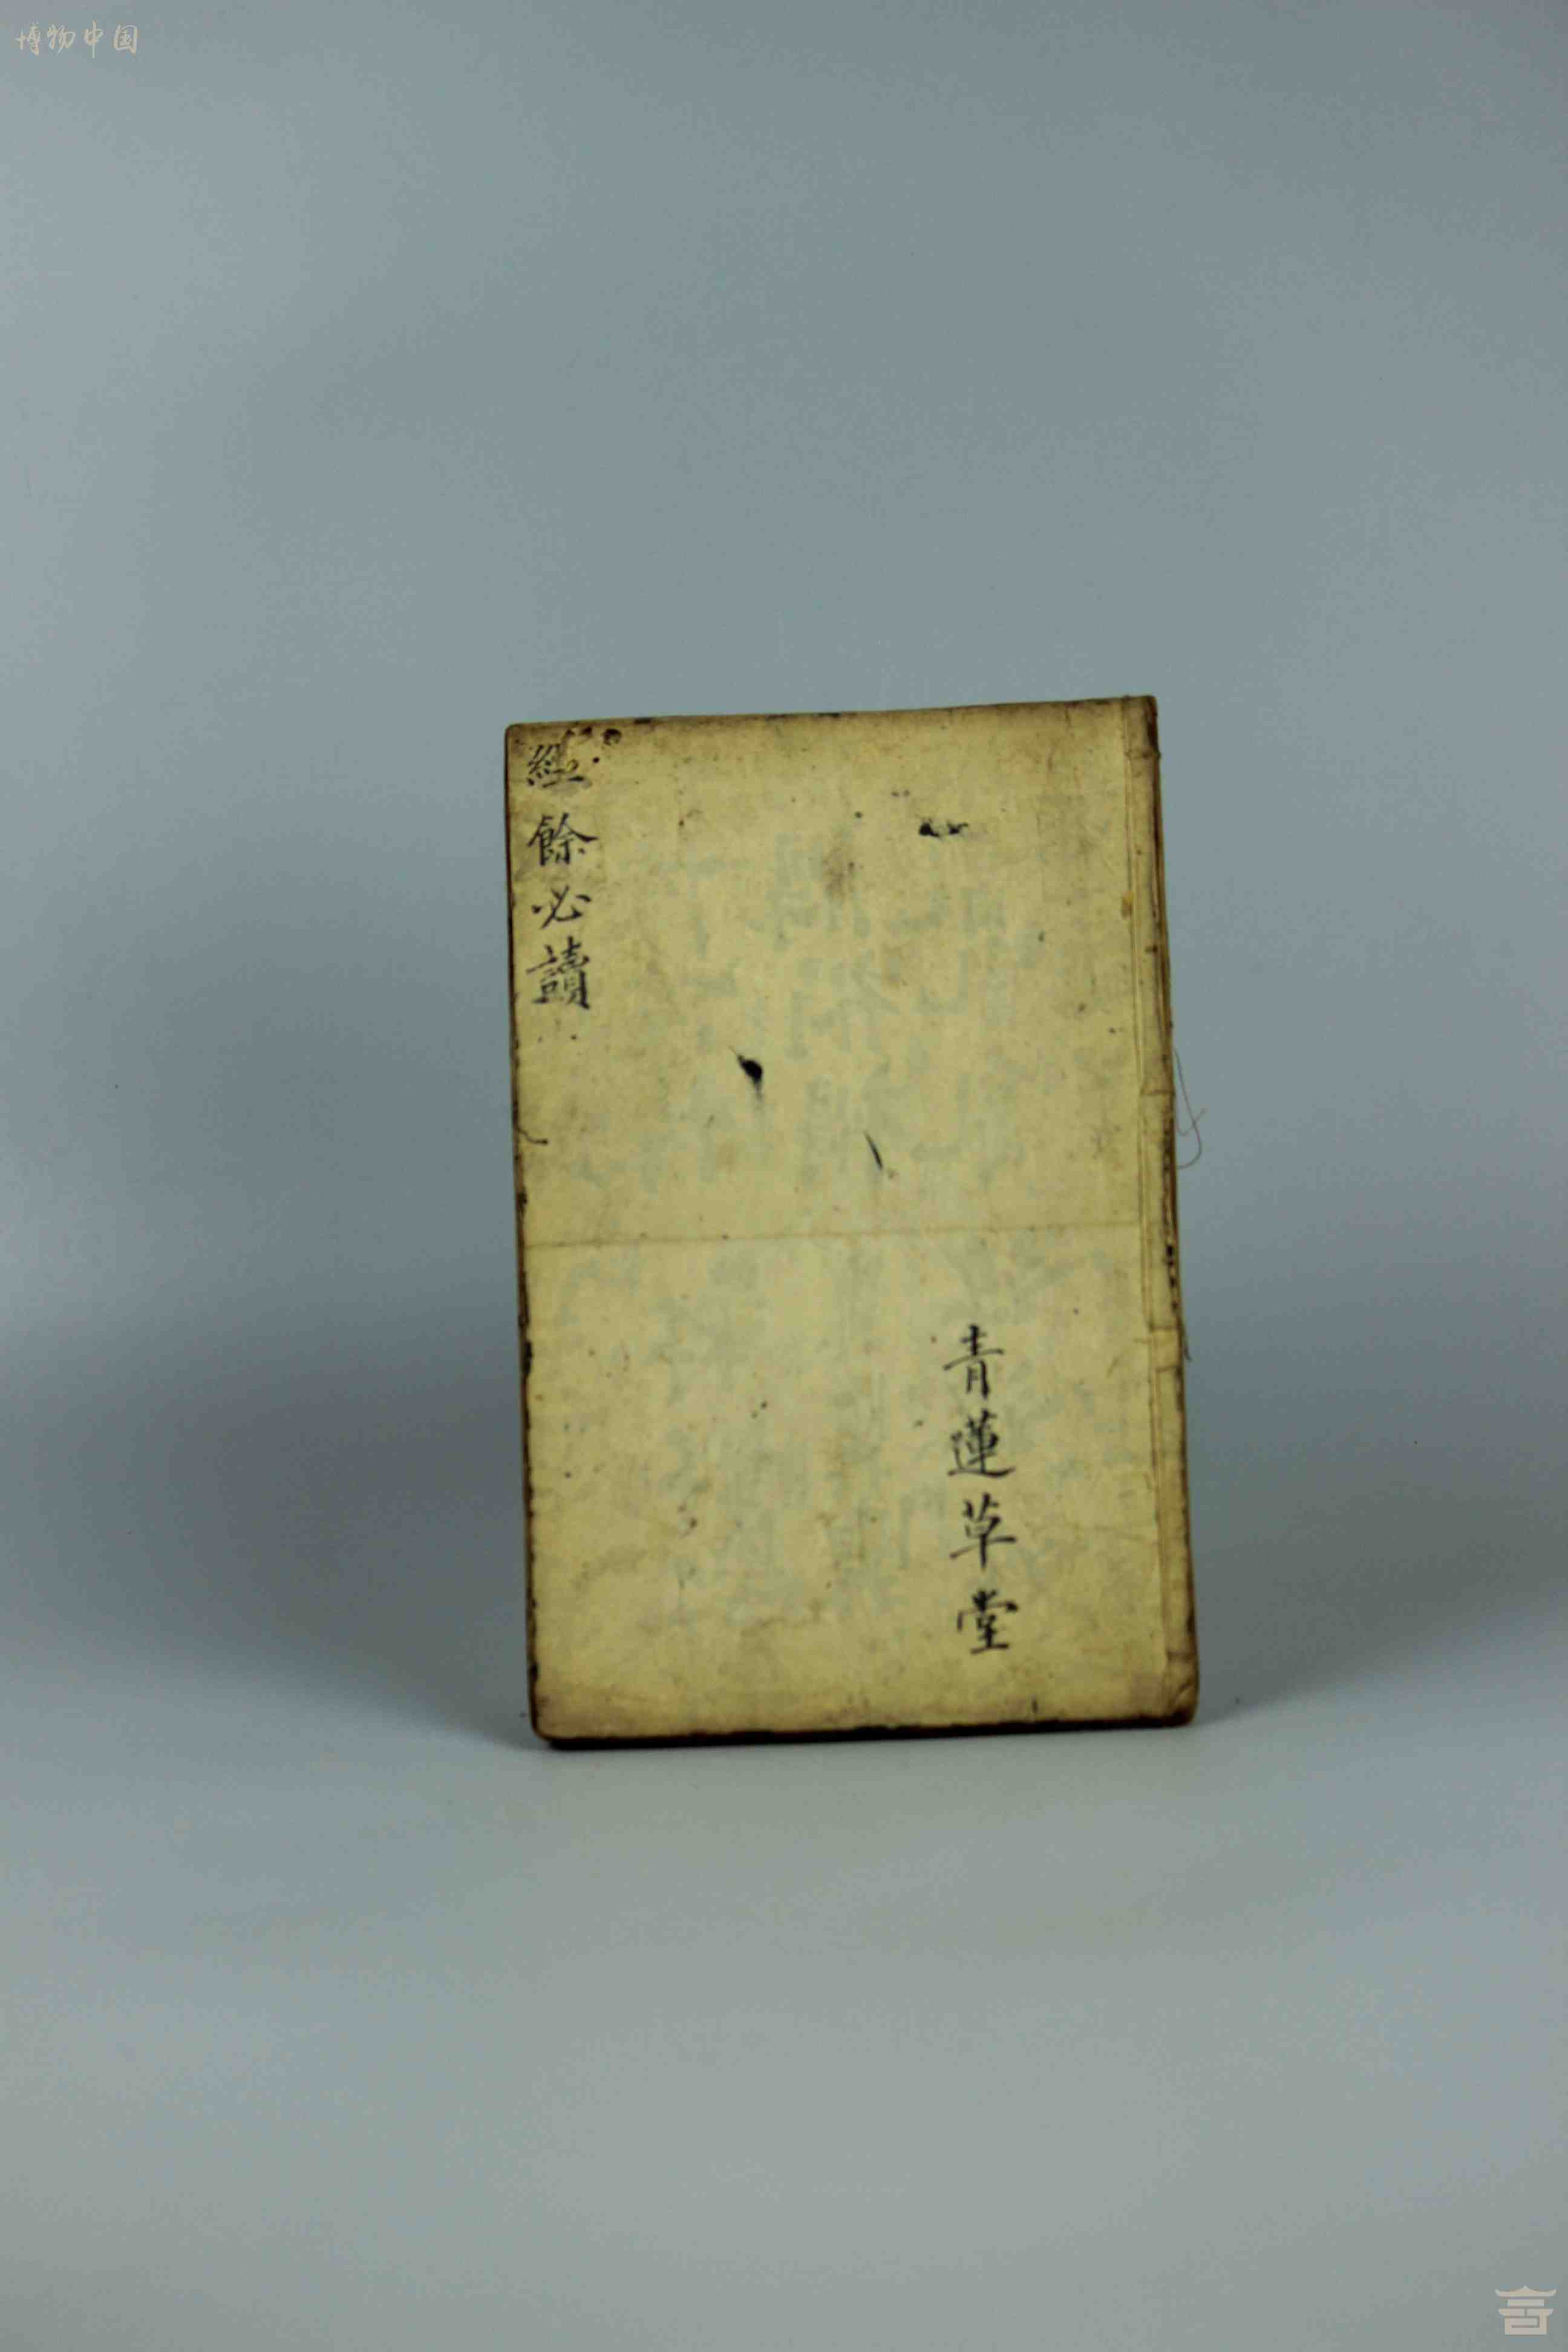 博物中国
經餘必讀
青蓮草堂